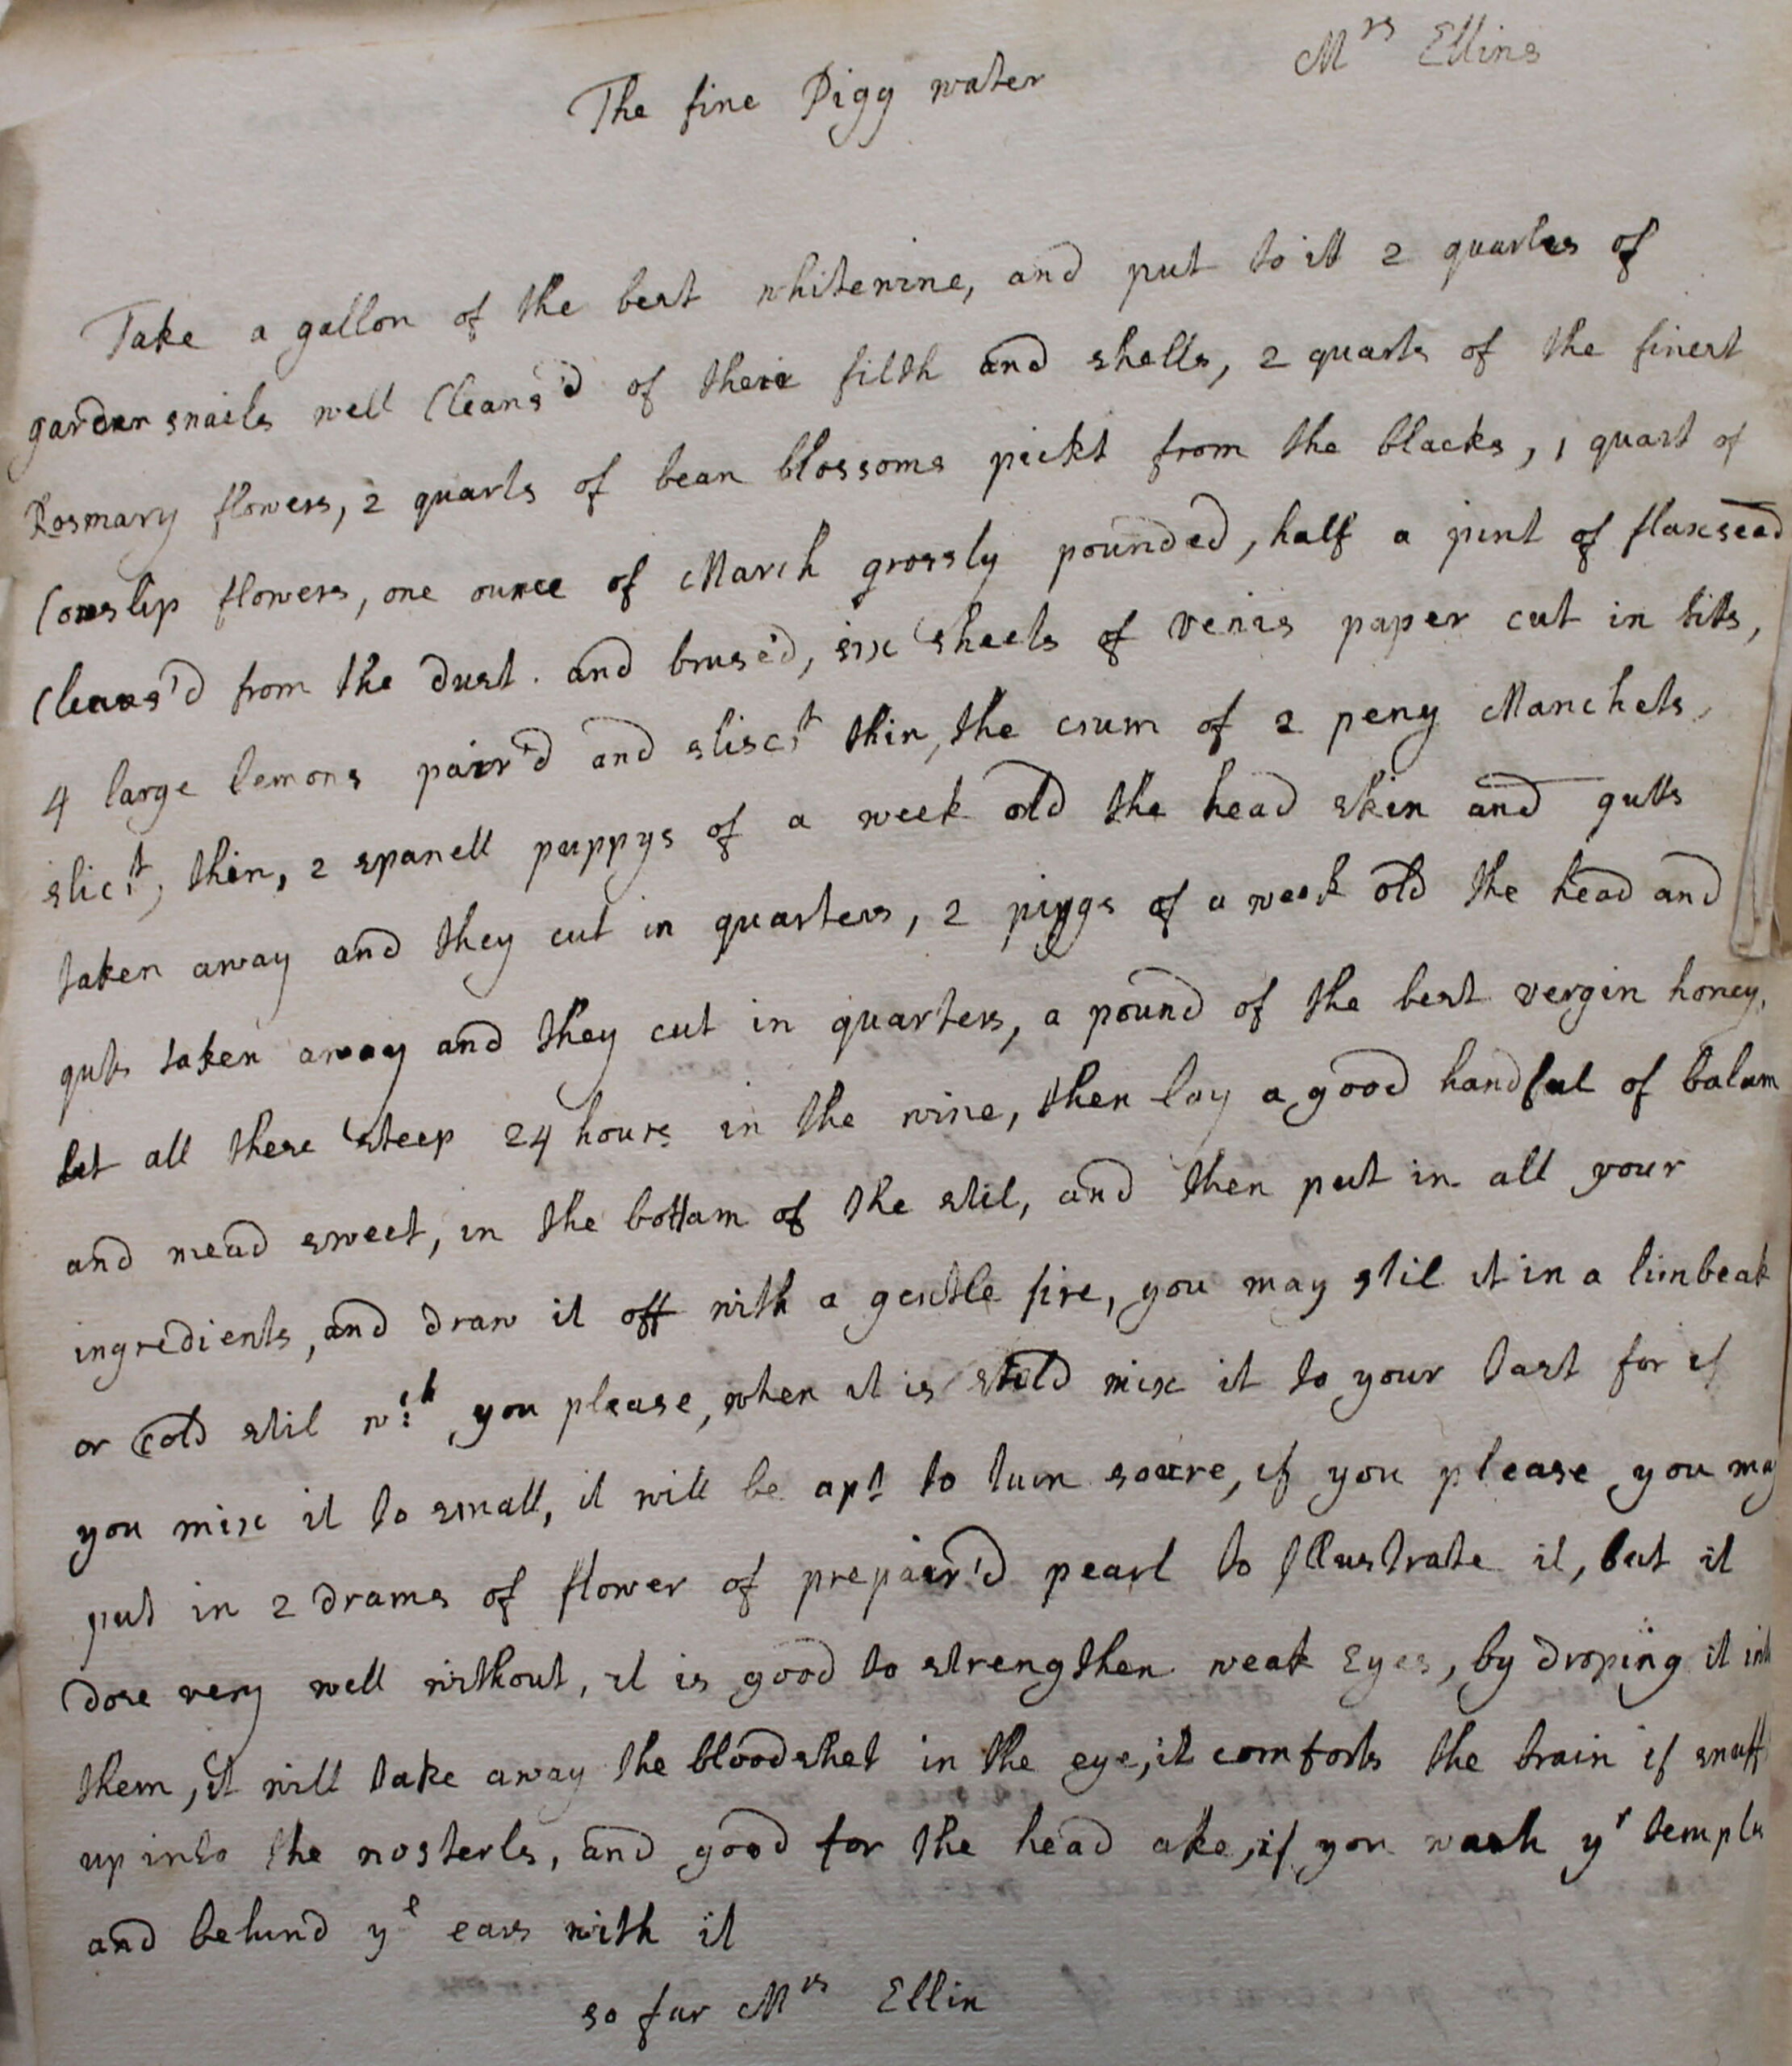 Mrs Ellins
The fine Pigg water
Take a gallon of the best whitewine, and put to itt 2 quartes of
garden snails well Cleans'd of theire filth and shells, 2 quarts of the finest
Rosmary flowers, 2 quarts of bean blossoms pickt from the blacks, 1 quart of
Cowslip flowers, one ounce of March grossly pounded, half a pint of flaxseed
Cleans'd from the dust. and brus'd, six sheets of venis paper cut in bitts,
4 large lemons pair'd and slisct thin, the crum of 2 peny Manchets,
slict, thin, 2 spanell puppys of a week old the head skin and gutts
taken away and they cut in quarters, 2 piggs of a week old the head and
guts taken away and they cut in quarters, a pound of the best vergin honey,
let all these steep 24 hours in the wine, then lay a good handful of balum
and mead sweet, in the bottam of the stil, and then put in all your
ingredients, and draw it off with a gentle fire, you may stil it in a limbeak
or cold stil wch you please, when it is stild mix it to your tast for if
you mix it to small, it will be apt to turn soure, if you please you may
put in 2 drams of flower of prepair'd pearl to Illustrate it, but it
dose very well without, it is good to strengthen weak Eyes, by droping it into
them, it will take away the bloodshet in the eye, it comforts the brain if snufft
up into the nosterls, and good for the head ake, if you wash yr temples
and behind ye ears with it
so far Mrs Ellin